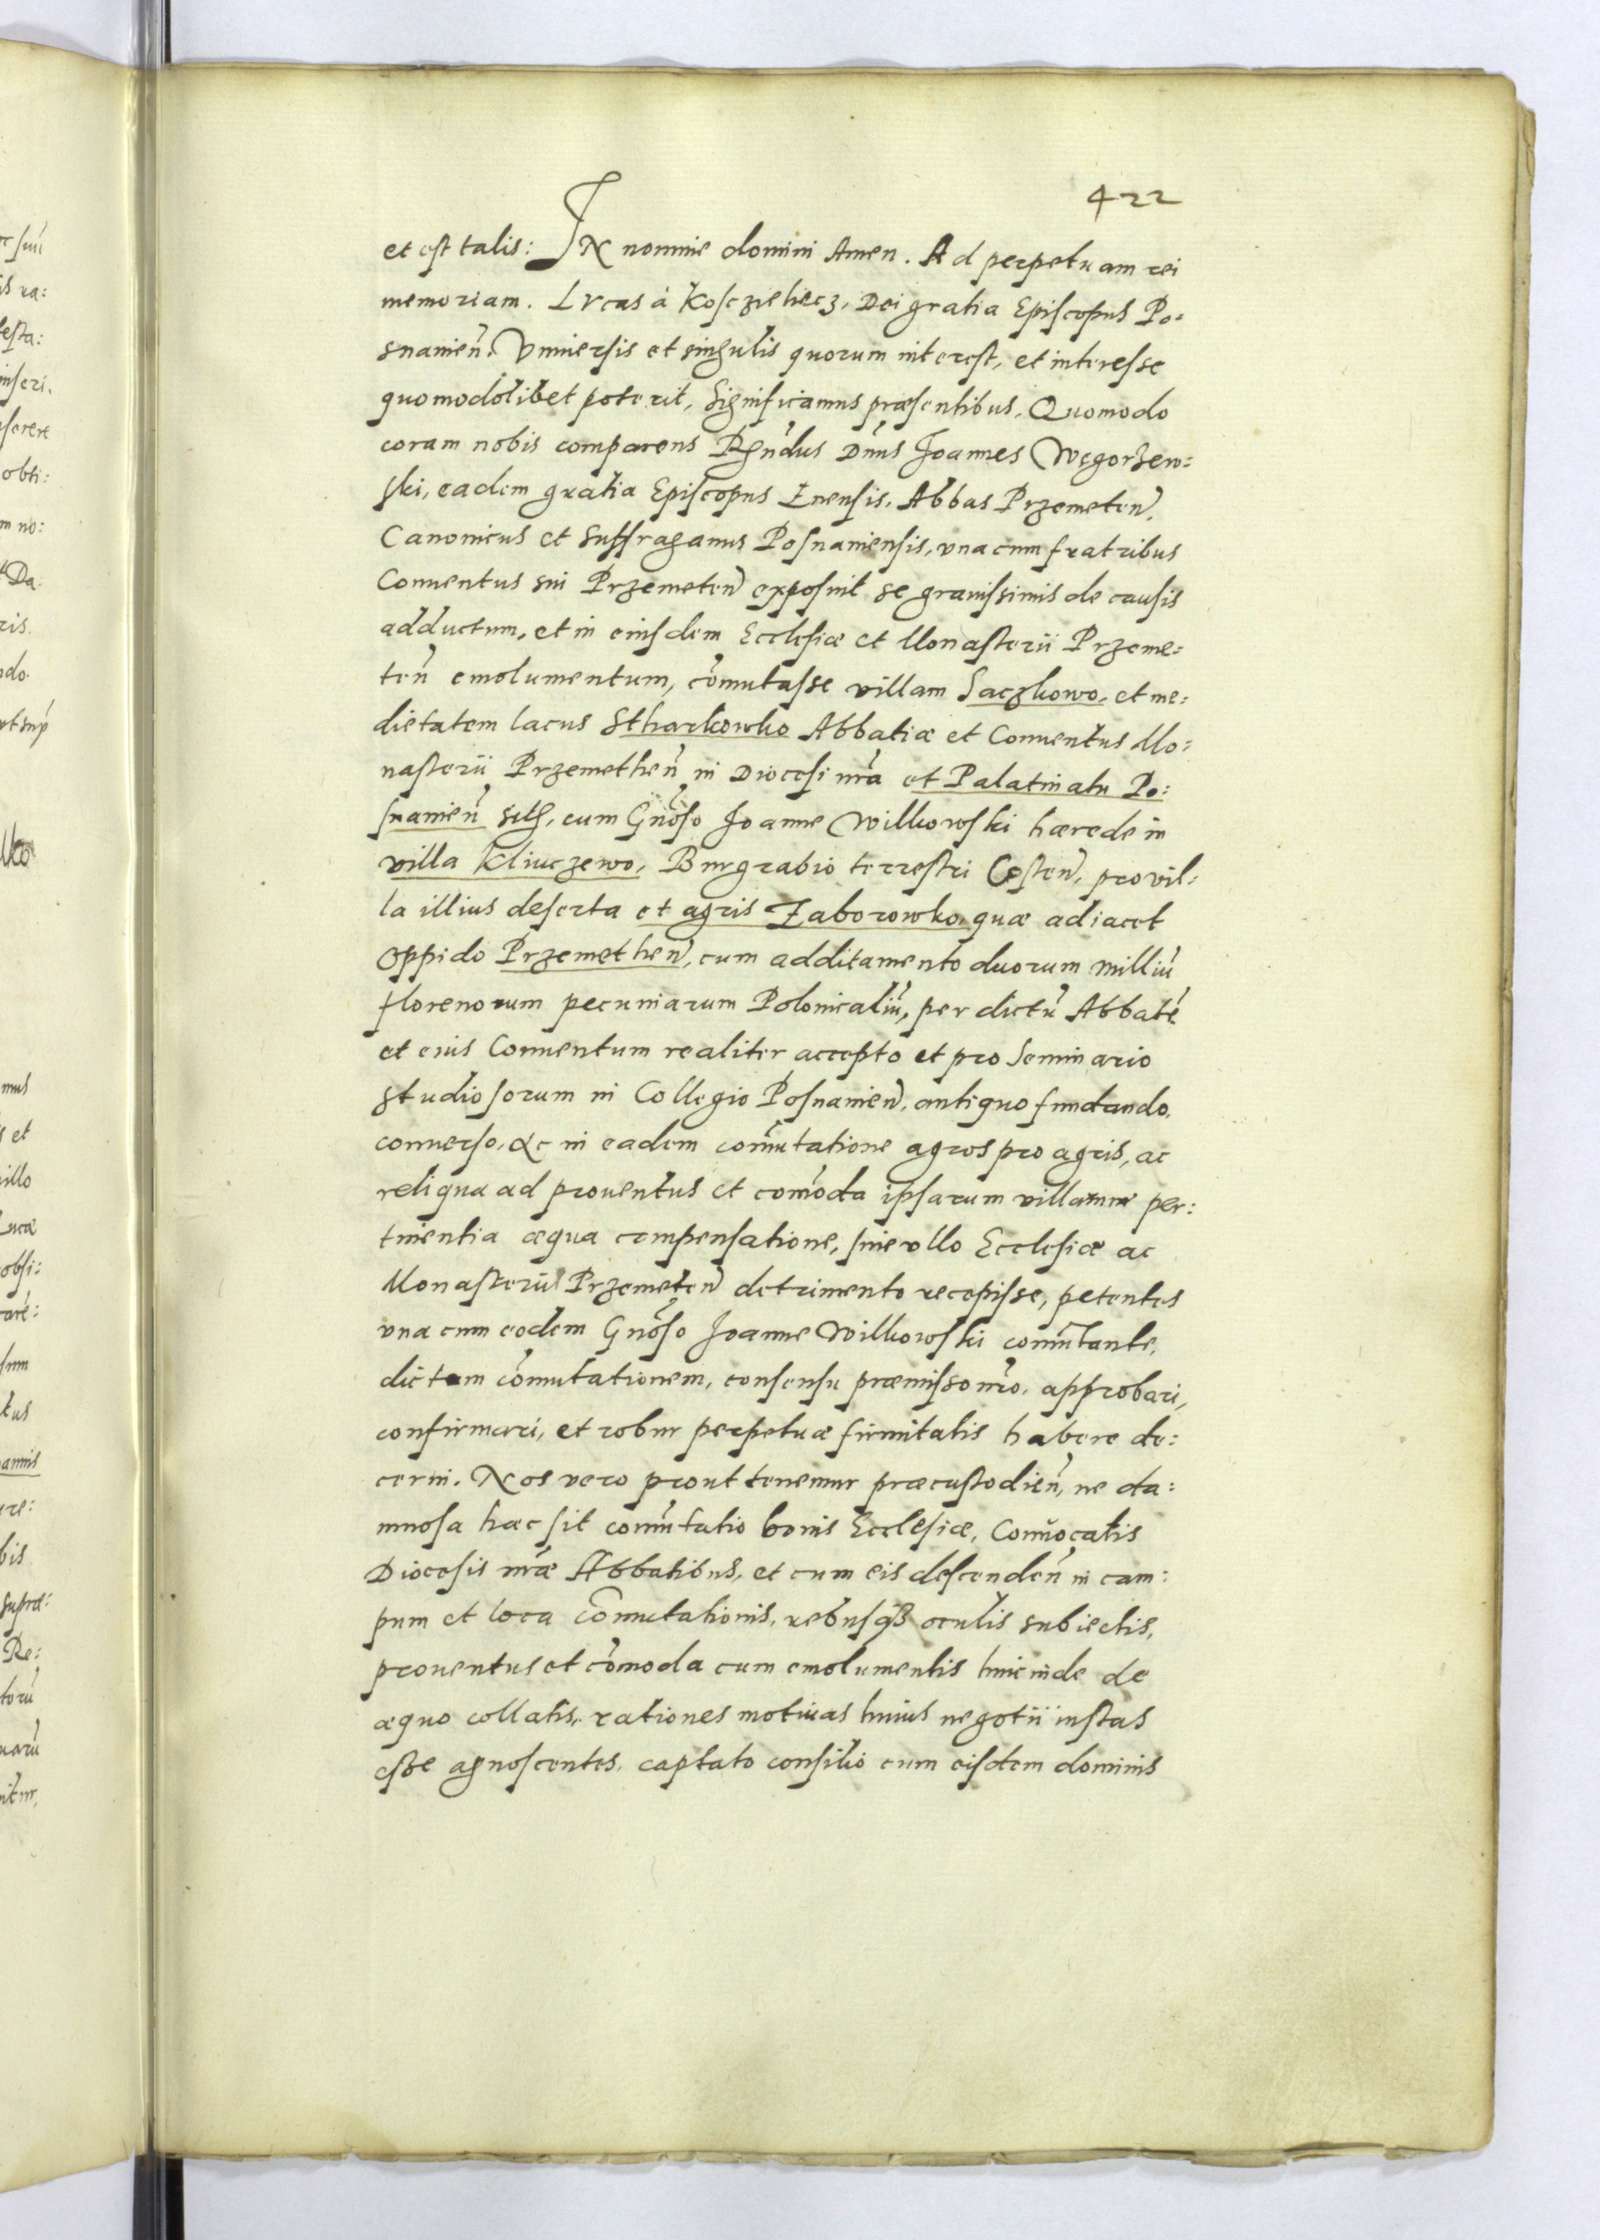 422
et est talis: IN nomine domini Amen. Ad perpetuam rei
memoriam. Lvcas á Kosczieliecz, Dei gratia Episcopus Po=
snanien̄. Vniuersis et singulis quorum interest, et interesse
quomodolibet poterit, Significamus præsentibus, Quomodo
coram nobis comparens Rn̄dus Dn̄us Joannes Węgorzew=
ski, eadem gratia Episcopus Enensis, Abbas Przemeten̄.
Canonicus et Suffraganus Posnaniensis, vna cum fratribus
Conuentus sui Przemeten̄ exposuit se grauissimis de causis
adductum, et in eiusdem Ecclesiæ et Monasterii Przeme=
ten̄ emolumentum, com̄utasse villam Saczkowo, et me=
dietatem lacus Stharkowko Abbatiæ et Conuentus Mo=
nasterii Przemethen̄ in Diocesi nr̄a et Palatinatu Po=
snanien̄ sith, cum Gn̄oso Joanne Wilkowski hærede in
villa Kliuczewo, Burgrabio terrestri Costen̄, pro vil=
la illius deserta et agris Zaborowko, quæ adiacet
Oppido Przemethen̄, cum additamento duorum milliū
florenorum pecuniarum Polonicaliū, per dictū Abbatē
et eius Conuentum realiter accepto et pro Seminario
studiosorum in Collegio Posnanien̄, antiquo fundando,
conuerso, &c in eadem com̄utatione agros pro agris, ac
reliqua ad prouentus et com̄oda ipsarum villarum per=
tinentia æqua compensatione, sine vllo Ecclesiæ ac
Monasterii Przemeten̄ detrimento recepisse, petentes
vna cum eodem Gn̄oso Joanne Wilkowski com̄utante,
dictam com̄utationem, consensu præmisso nr̄o, approbari,
confirmari, et robur perpetuæ firmitatis habere de=
cerni. Nos vero prout tenemur præcustodien̄, ne da=
mnosa hæc sit com̄utatio bonis Ecclesiæ, Conuocatis
Diocesis nr̄æ Abbatibus, et cum eis descenden̄ in cam=
pum et loca com̄utationis, rebusqß oculis subiectis,
prouentus et com̄oda cum emolumentis hinc inde de
æquo collatis, rationes motiuas huius negotii iustas
esse agnoscentes, captato consilio cum eisdem dominis